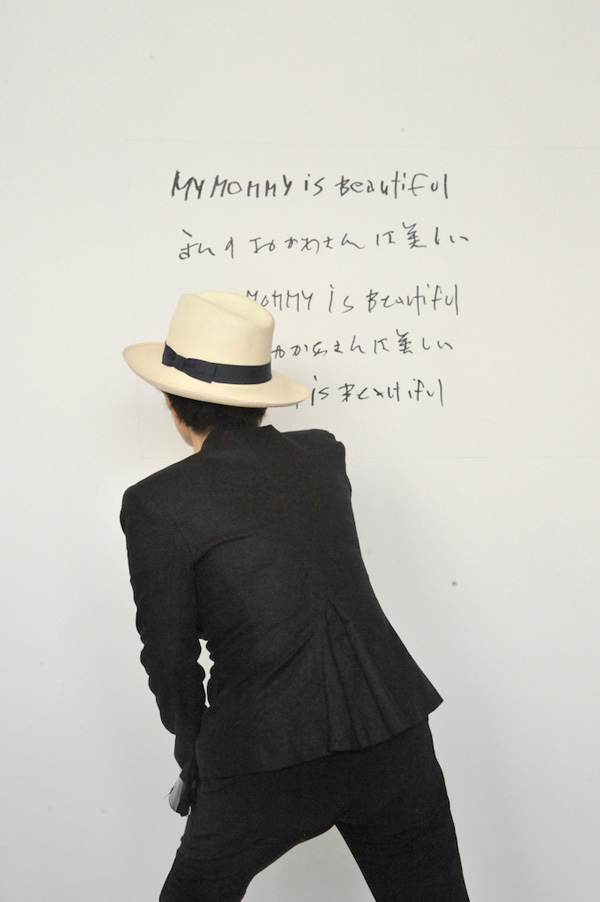 MY MOMMY is Beautiful
おかあさんは美しい
MOMMY is Beautiful
かあさんは美しい
is Beautiful